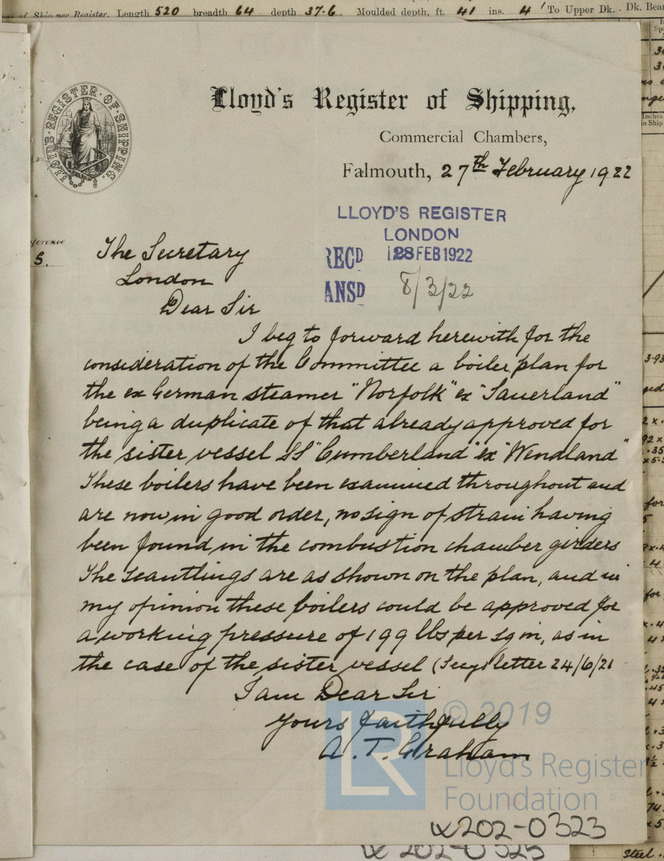 of Ship per Register. Length 520 breadth 64 depth 37.6. Moulded depth, ft. 41 ins. 4 To Upper Dk.
LLOYD'S REGISTER OF SHIPPING
Lloyd's Register of Shipping,
Commercial Chambers,
Falmouth, 27th February 1922
LLOYD'S REGISTER
LONDON
RECD 28 FEB 1922
ANSD 8/3/22
5.
The Secretary
London
Dear Sir
I beg to forward herewith for the
consideration of the Committee a boiler plan for
the ex German steamer "Norfolk" ex "Sauerland"
being a duplicate of that already approved for
the sister vessel SS "Cumberland" ex "Wendland"
These boilers have been examined throughout and
are now in good order, no sign of strain having
been found in the combustion chamber girders
The scantlings are as shown on the plan, and in
my opinion these boilers could be approved for
a working pressure of 199 lbs per sq in, as in
the case of the sister vessel (Secys letter 24/6/21
I am Dear Sir
Yours faithfully
A. T. Graham
© 2019
Lloyd's Register
Foundation
LR
W202-0323
W202-0323
Steel.